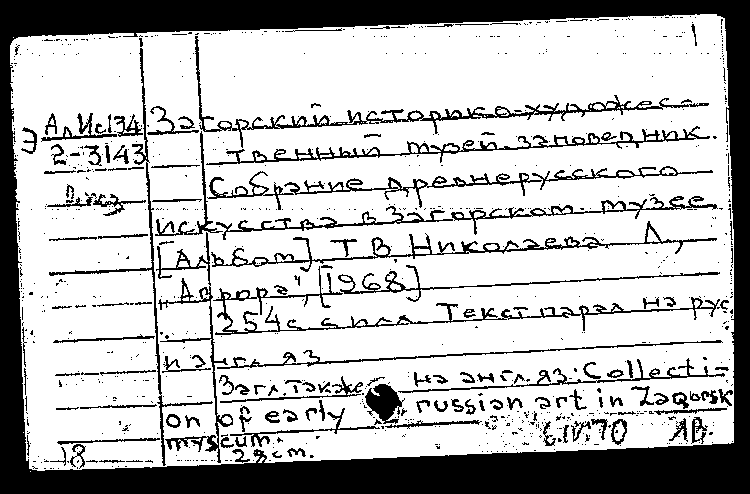 1
АлИс134 Загорский историко-художес-
Э
2-3143 твенный музей-заповедник.
Собрание древнерусского
искусства в Загорском музее.
[Альбом]. Т.В. Николаева. Л.,
„Аврора", [1968]
254с. с илл. Текст парал. на рус.
и англ. яз.
Загл. также на англ. яз: Collecti-
on of early russian art in Zagorsk
myseum.
28 cm. 6.IV.70 АВ.
18